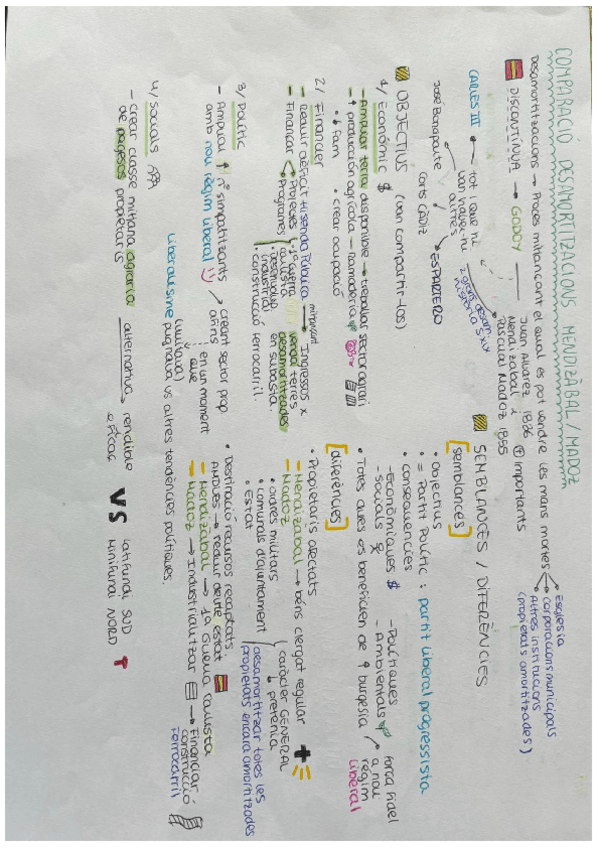 COMPARACIÓ DESAMORTITZACIONS MENDIZÀBAL / MADOZ
Desamortitzacions → Procés mitjançant el qual es pot vendre les mans mortes
Església
Corporacions municipals
Altres institucions
(propietats amortitzades)
DISCONTÍNUA → GODOY
Juan Alvarez Mendizabal 1836 i
Pascual Madoz 1855
+ importants
CARLES III
tot i que hi
van haver-hi
altres
2 grans desam
història S.XIX
José Bonaparte
Corts Càdiz
ESPARTERO
OBJECTIUS (van compartir-los)
1/ Econòmic $
- Ampliar terra disponible → treballar sector agrari
- ↑ producció agrícola - Ramaderia
• ↓ Fam
• crear ocupació
2/ Financer
- Reduir dèficit Hisenda Pública → Ingressos x
mitjançant
venda terres
desamortitzades
en subasta.
- Finançar
Projectes
Programes
• 1a guerra
carlina
• Desenvolup.
industrial
• Construcció ferrocarril.
3/ Polític
- Ampliar ↑ nº simpatitzants
amb nou règim liberal
creant sector prop
afins
en un moment
que
liberalisme pugnava vs altres tendències polítiques.
(lluitava)
4/ Socials
- Crear classe mitjana agrària
de pagesos propietaris
alternativa → rendible
eficaç
VS
latifundi SUD
Minifundi NORD
SEMBLANCES / DIFERÈNCIES
[semblances]
• Objectius
• = Partit Polític : partit liberal progressista
• conseqüències
- Econòmiques $
- Socials
- Polítiques
- Ambientals
• Totes dues es beneficien de ↑ burgesia
força fidel
a nou
règim
liberal
[diferències]
• Propietaris afectats
- Mendizabal → béns clergat regular
- Madoz
• ordres militars
• comunals d'ajuntament
• Estat
caràcter GENERAL
↓ pretenia
desamortitzar totes les
propietats encara amortitzades
• Destinació recursos recaptats.
AMDUES → reduir deute estat
- Mendizabal → 1A Guerra Carlista
- Madoz → Industrialitzar → Finançar
construcció
Ferrocarril